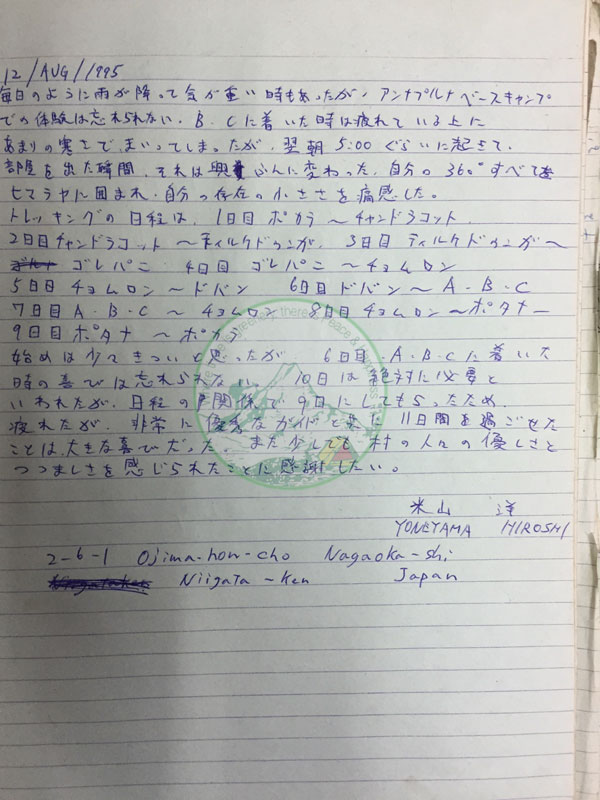 12/AUG/1995
毎日のように雨が降って気が重い時もあったが、アンナプルナベースキャンプ
での体験は忘れられない。B.Cに着いた時は疲れている上に
あまりの寒さで、まいってしまったが、翌朝5:00ぐらいに起きて、
部屋を出た瞬間、それは興ふんに変わった。自分の360°すべてを
ヒマラヤに囲まれ、自分の存在の小ささを痛感した。
トレッキングの日程は、1日目 ポカラ〜チャンドラコット
2日目チャンドラコット〜ティルケドゥンガ、3日目 ティルケドゥンガ〜
ゴレパニ 4日目 ゴレパニ〜チョムロン
5日目 チョムロン〜ドバン 6日目 ドバン〜A.B.C
7日目 A.B.C〜チョムロン 8日目 チョムロン〜ポタナー
9日目 ポタナ〜ポカラ
始めは少てきついと思ったが、6日目、A.B.Cに着いた
時の喜びは忘れられない。10日は絶対に必要と
いわれたが、日程の関係で9日にしてもらったため
疲れたが、非常に優秀なガイドと共に11日間を過ごせた
ことは大きな喜びだった。また少しでも村の人々の優しさと
つつましさを感じられたことに感謝したい。
米山 洋
YONEYAMA HIROSHI
2-6-1 Ojima-hon-cho Nagaoka-shi
Niigata-ken Japan
greenery there is Peace &